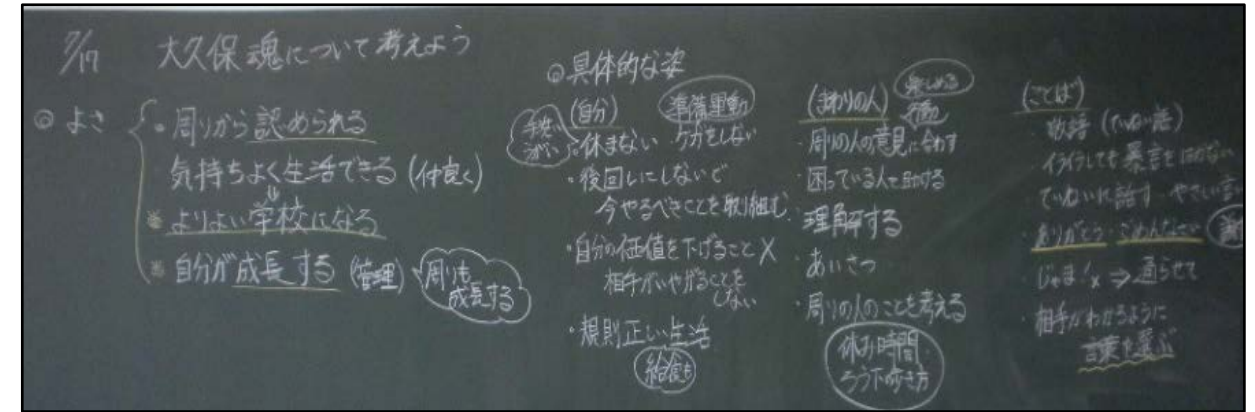 7/17 大久保魂について考えよう
◎よさ
・周りから認められる
気持ちよく生活できる(仲良く)
⇓
※よりよい学校になる
※自分が成長する(管理)
周りも
成長する
◎具体的な姿
(自分)
準備運動
手洗い
うがい
・休まない ケガをしない
・後回しにしないで
今やるべきことを取り組む
・自分の価値を下げること×
相手がいやがることを
しない
・規則正しい生活
給食も
(まわりの人)
楽しめる
・周りの人の意見に合わす
・困っている人を助ける
・理解する
・あいさつ
・周りの人のことを考える
休み時間
ろう下の歩き方
(ことば)
敬語(ていねい語)
イライラしても暴言をはかない
ていねいに話す やさしい言
・ありがとう・ごめんなさい
じゃま!× ⇒ 通らせて
・相手がわかるように
言葉を選ぶ